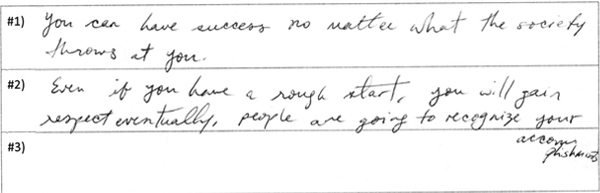 #1) You can have success no matter what the society
throws at you.
#2) Even if you have a rough start, you will gain
respect eventually, people are going to recognize your
accom
plishments
#3)